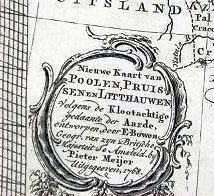 ITSLAND
Nieuwe Kaart van
POOLEN, PRUIS
SEN EN LITTHAUWEN,
Volgens de Klootachtige
gedaante der Aarde,
ontworpen, door E. Bowen,
Geogr. van zyn Britsche
Majesteit, te Amsteld. by
Pieter Meijer
Uitgegeeven, 1768.